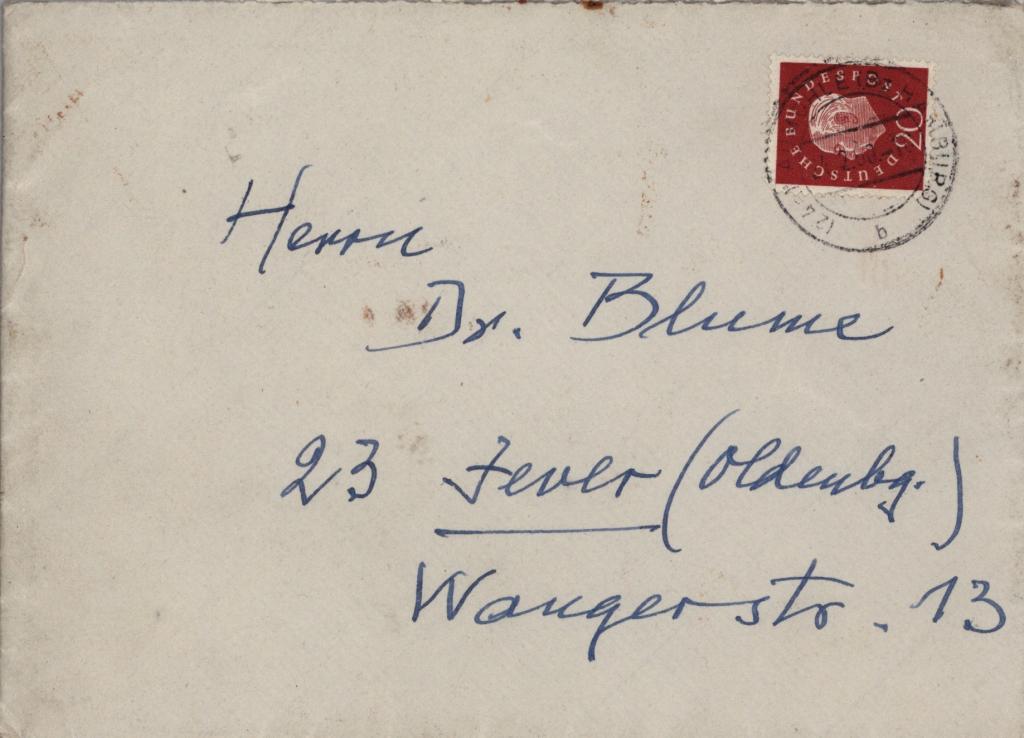 DEUTSCHE BUNDESPOST
20
(24
b
Herrn
Dr. Blume
23 Jever (Oldenbg.)
Wangerstr. 13